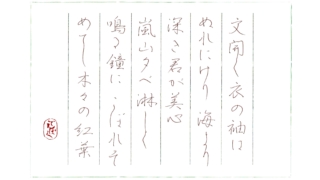 文開く衣の袖は
ぬれにけり 海より
深き君が美心
嵐山夕べ淋しく
鳴る鐘に こぼれそ
めてし木々の紅葉